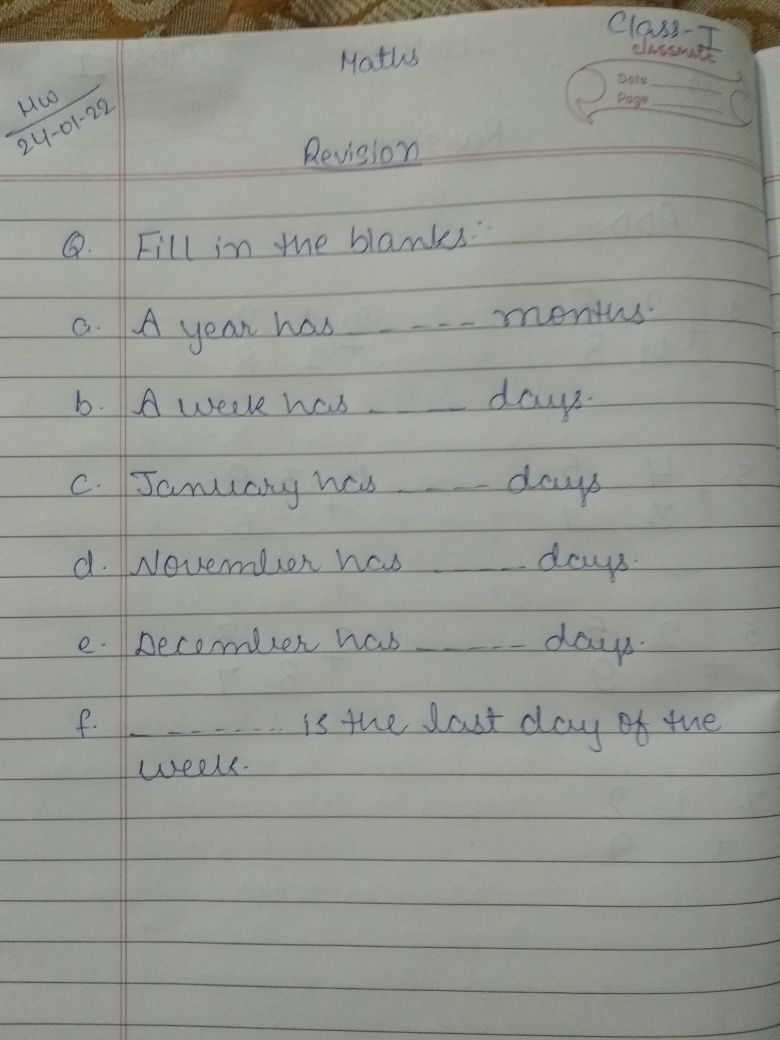 Class-I
Maths
classmate
Date
Page
HW
24-01-22
Revision
Q. Fill in the blanks:
a. A year has ----- months.
b. A week has ---- days.
c. January has ---- days
d. November has ---- days.
e. December has ----- days.
f. -------- is the last day of the
week.